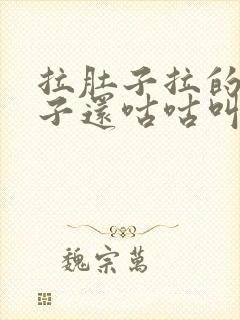 拉肚子拉的
子還咕咕叫
魏宗萬